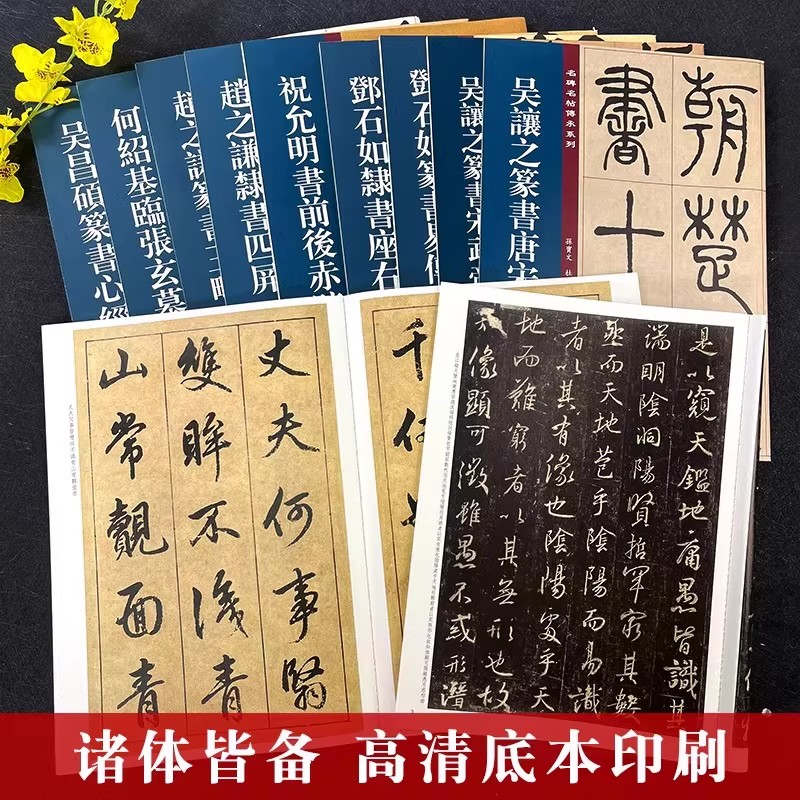 吴昌碩篆書心經
何紹基臨張玄墓
趙之謙篆書
趙之謙隸書四屏
祝允明書前後赤
鄧石如隸書座右
鄧石如篆書易
吴讓之篆書宋武
吴讓之篆書唐宋
名碑名帖傳承系列
孫寶文
朝楚
書十
丈夫何事翳
雙眸不識青
山常覿面青
千何
是以窺天鑑地庸愚皆識其
端明陰洞陽賢哲罕窮其數
然而天地苞乎陰陽而易識
者以其有像也陰陽處乎天
地而難窮者以其無形也故
像顯可徵雖愚不惑形潛
诸体皆备 高清底本印刷